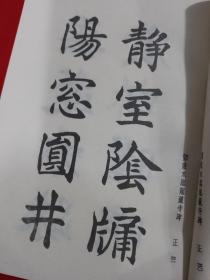 静室陰牗
陽窓圓井